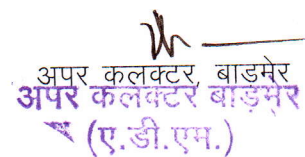 अपर कलक्टर, बाडमेर
अपर कलक्टर बाड़मेर
(ए.डी.एम.)